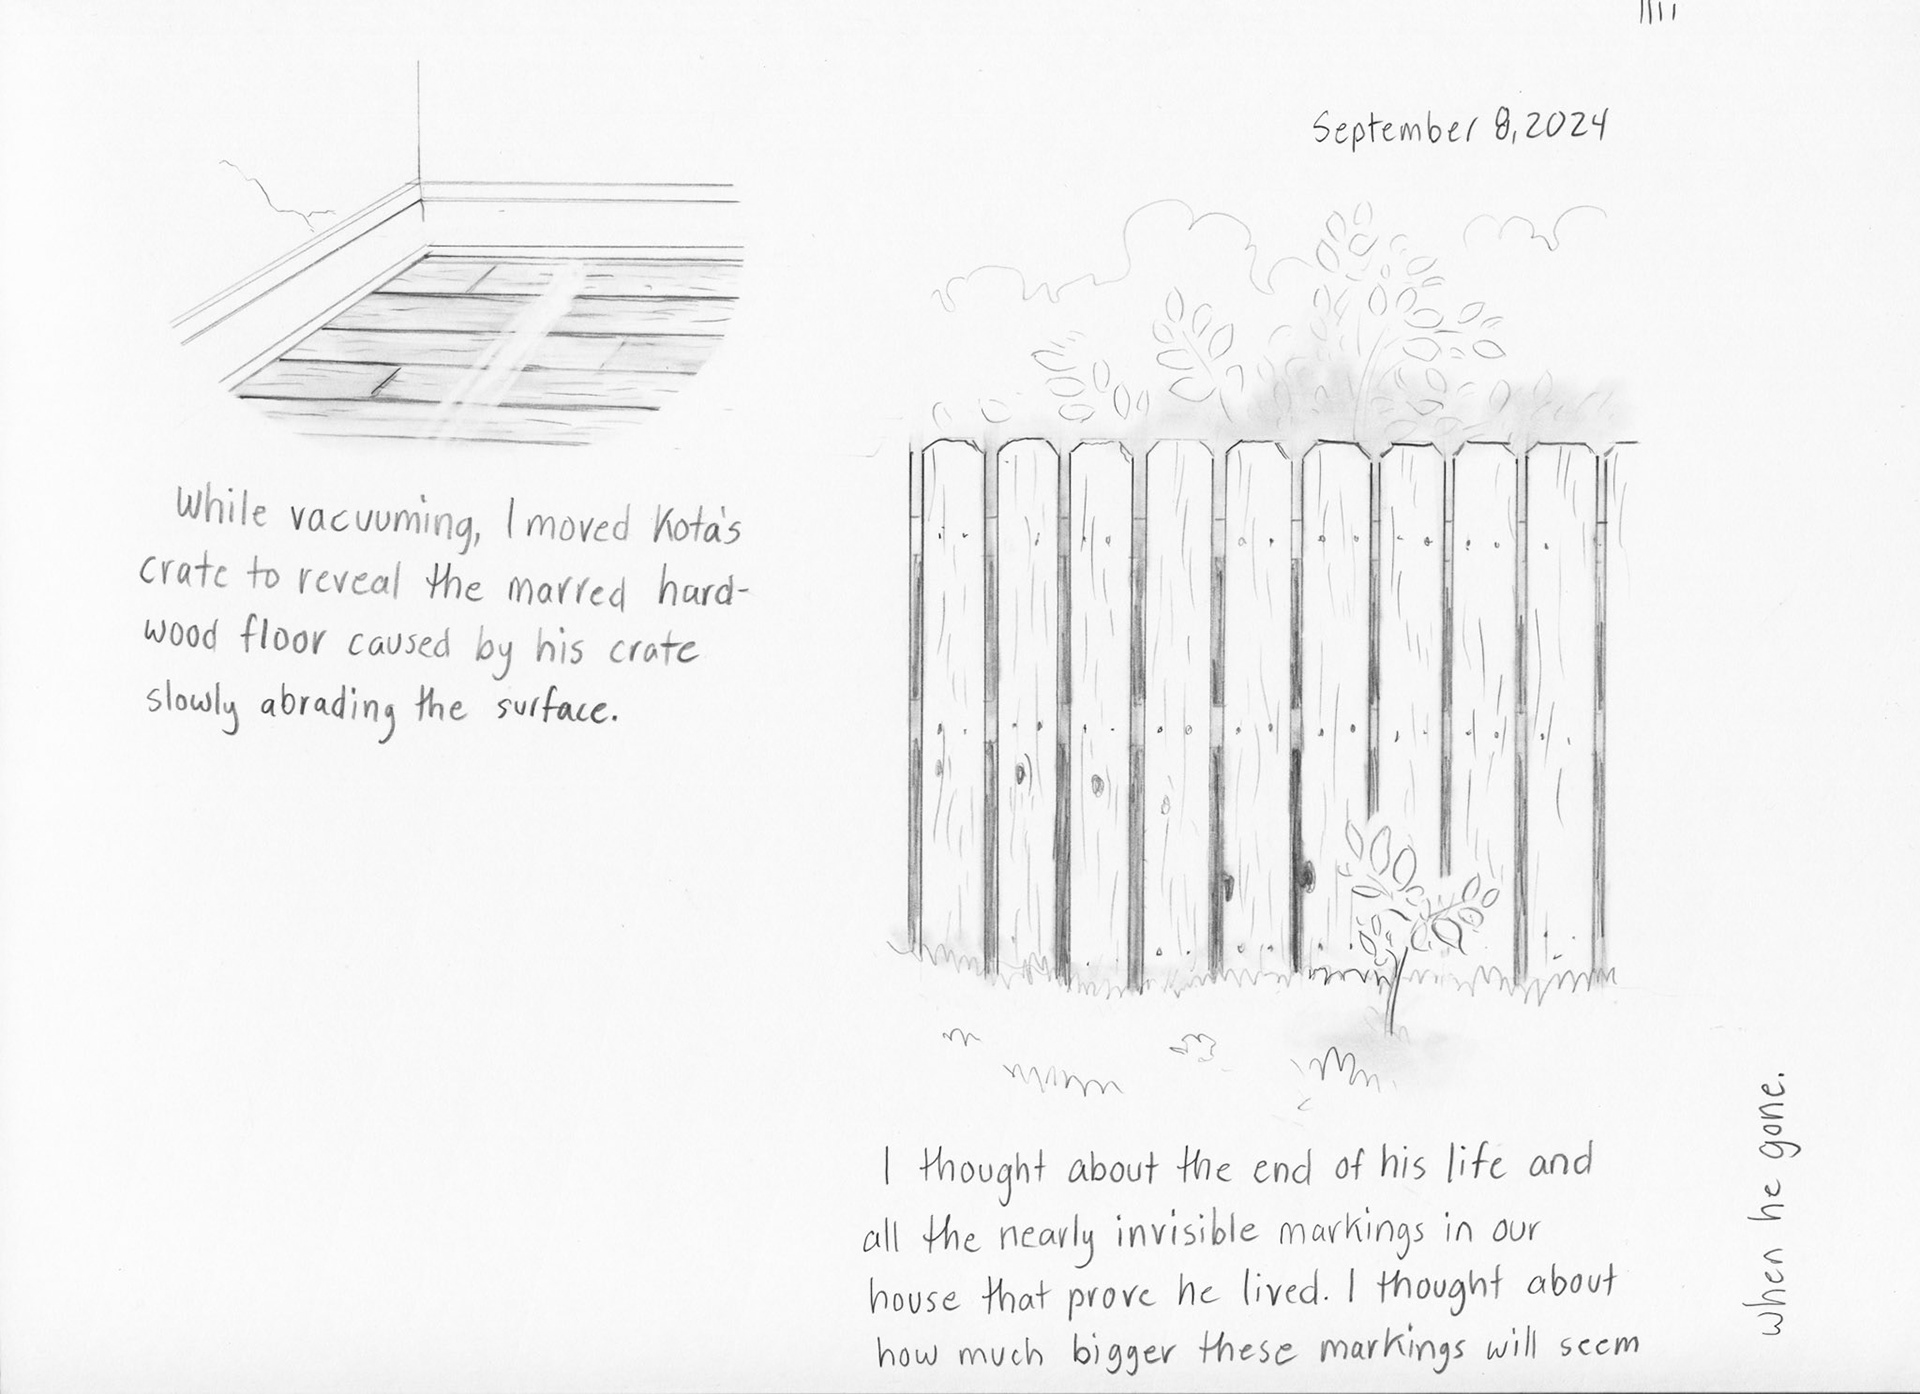 September 8, 2024
While vacuuming, I moved Kota's
crate to reveal the marred hard-
wood floor caused by his crate
slowly abrading the surface.
I thought about the end of his life and
all the nearly invisible markings in our
house that prove he lived. I thought about
how much bigger these markings will seem
when he gone.